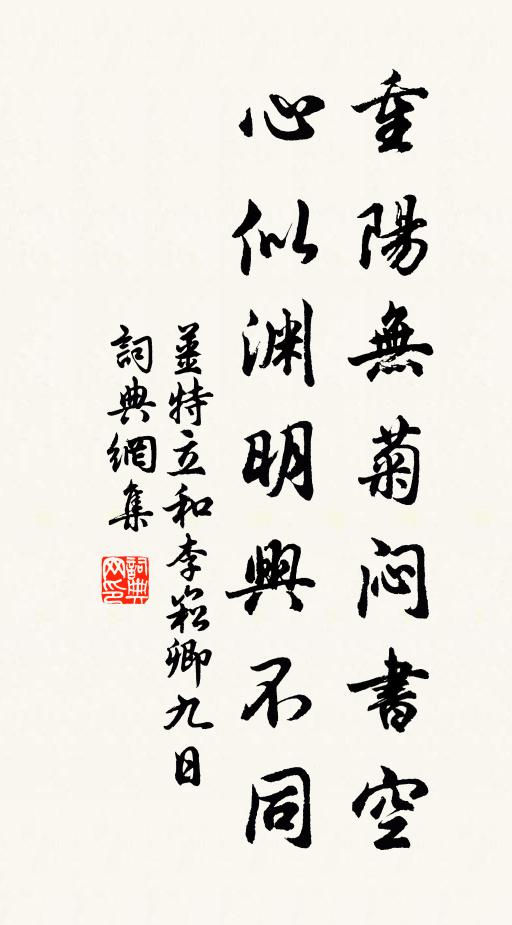 重陽無菊闷書空
心似渊明興不同
姜特立和李崧卿九日
詞典網集
詞典网印